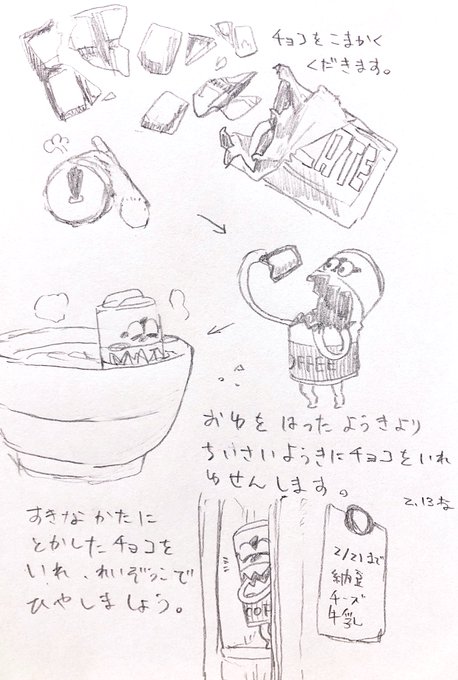 チョコをこまかく
くだきます。
ATE
OFFEE
おゆをはったようきより
ちいさいようきにチョコをいれ
ゆせんします。
2.13
すきなかたに
とかしたチョコを
いれ、れいぞうこで
ひやしましょう。
2/21まで
納豆
チーズ
牛乳